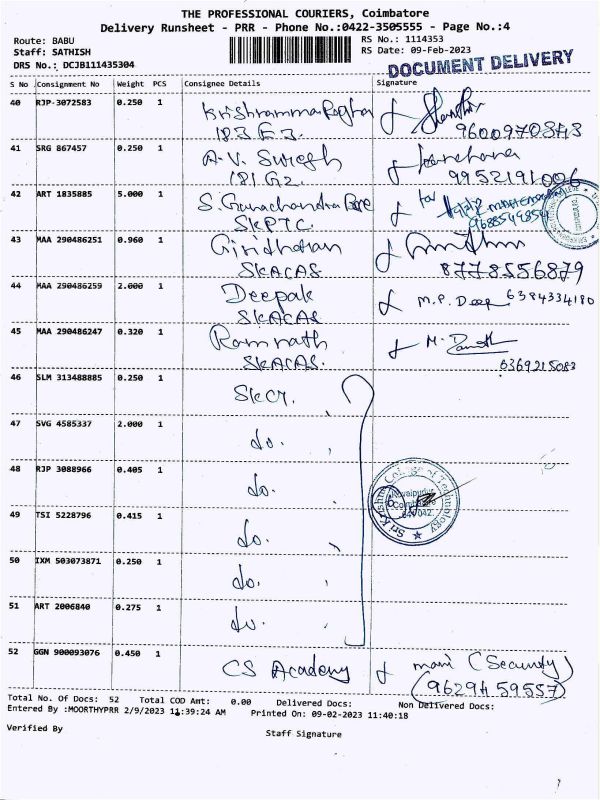 THE PROFESSIONAL COURIERS, Coimbatore
Delivery Runsheet - PRR - Phone No.:0422-3505555 - Page No.:4
Route: BABU RS No.: 1114353
Staff: SATHISH RS Date: 09-Feb-2023
DRS No.: DCJB111435304 DOCUMENT DELIVERY
S No Consignment No Weight PCS Consignee Details Signature
40 RJP-3072583 0.250 1
183 E3. 9600970843
41 SRG 867457 0.250 1 A.V. Suregh
181 G2. 9952191006
42 ART 1835885 5.000 1 for
SKPTC. 9688549854
43 MAA 290486251 0.960 1 Giridharan
SKACAS 8778556879
44 MAA 290486259 2.000 1 Deepak M.P. Deep 6384334180
SKACAS
45 MAA 290486247 0.320 1 Ramnath M.
SKACAS. 6369215083
46 SLM 313488885 0.250 1 SKCT.
47 SVG 4585337 2.000 1 do.
48 RJP 3088966 0.405 1 do.
Sri Krishna College of Technology
Coimbatore
641042.
49 TSI 5228796 0.415 1 do.
50 IXM 503073871 0.250 1 do.
51 ART 2006840 0.275 1 do.
52 GGN 900093076 0.450 1 CS Academy mani (Security)
(9629459557)
Total No. Of Docs: 52 Total COD Amt: 0.00 Delivered Docs: Non Delivered Docs:
Entered By :MOORTHYPRR 2/9/2023 11:39:24 AM Printed On: 09-02-2023 11:40:18
Verified By Staff Signature